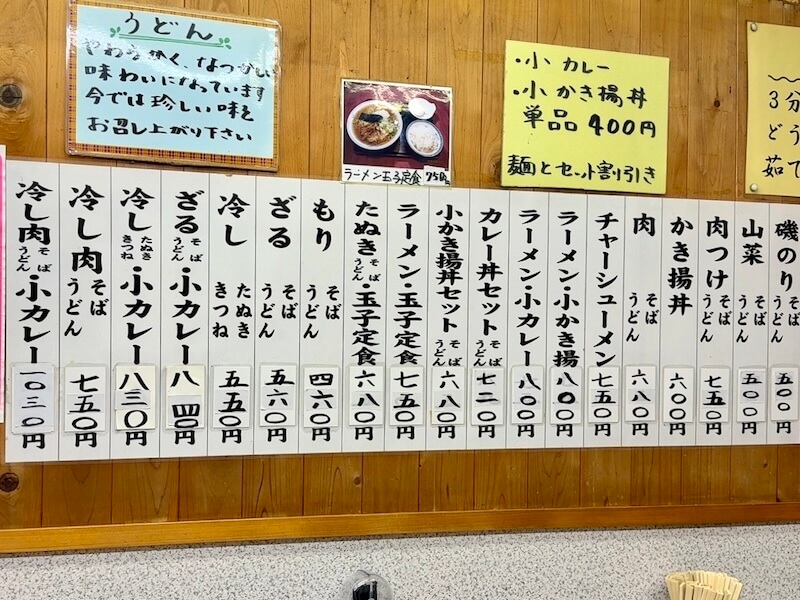 うどん
やわらかく、なつかしい
味わいになっています
今では珍しい味を
お召し上がり下さい
ラーメン玉子定食 750円
・小カレー
・小かき揚丼
単品 400円
麺とセット割引き
3分
どう
茹で
磯のりそばうどん 五〇〇円
山菜そばうどん 五〇〇円
肉つけそばうどん 七五〇円
かき揚丼 六〇〇円
肉そばうどん 六八〇円
チャーシューメン 七五〇円
ラーメン・小かき揚 八〇〇円
ラーメン・小カレー 八〇〇円
カレー丼セットそばうどん 七二〇円
小かき揚丼セットそばうどん 六八〇円
ラーメン・玉子定食 七五〇円
たぬきそばうどん・玉子定食 六八〇円
もりそばうどん 四六〇円
ざるそばうどん 五六〇円
冷したぬききつね 五五〇円
ざるそばうどん・小カレー 八四〇円
冷したぬききつね・小カレー 八三〇円
冷し肉そばうどん 七五〇円
冷し肉そばうどん・小カレー 一〇三〇円